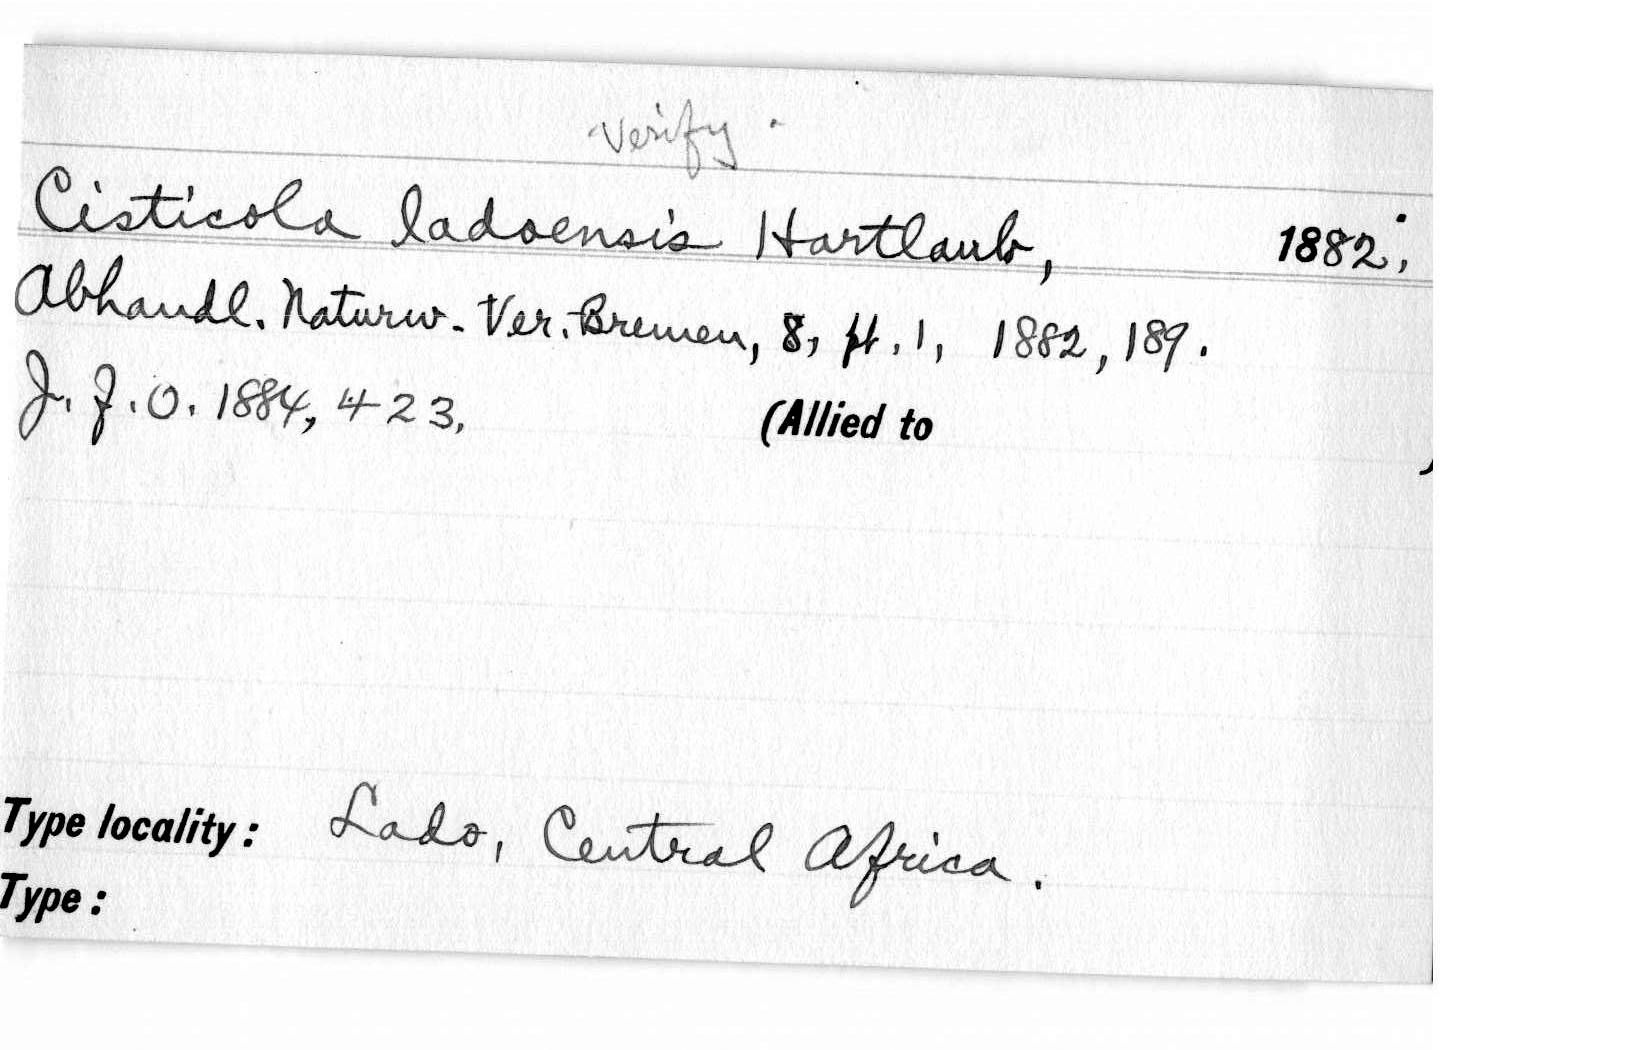 Verify.
Cisticola ladoensis Hartlaub, 1882;
Abhandl. Naturw. Ver. Bremen, 8, pt. 1, 1882, 189.
J. f. O. 1884, 423. (Allied to )
Type locality: Lado, Central Africa.
Type: